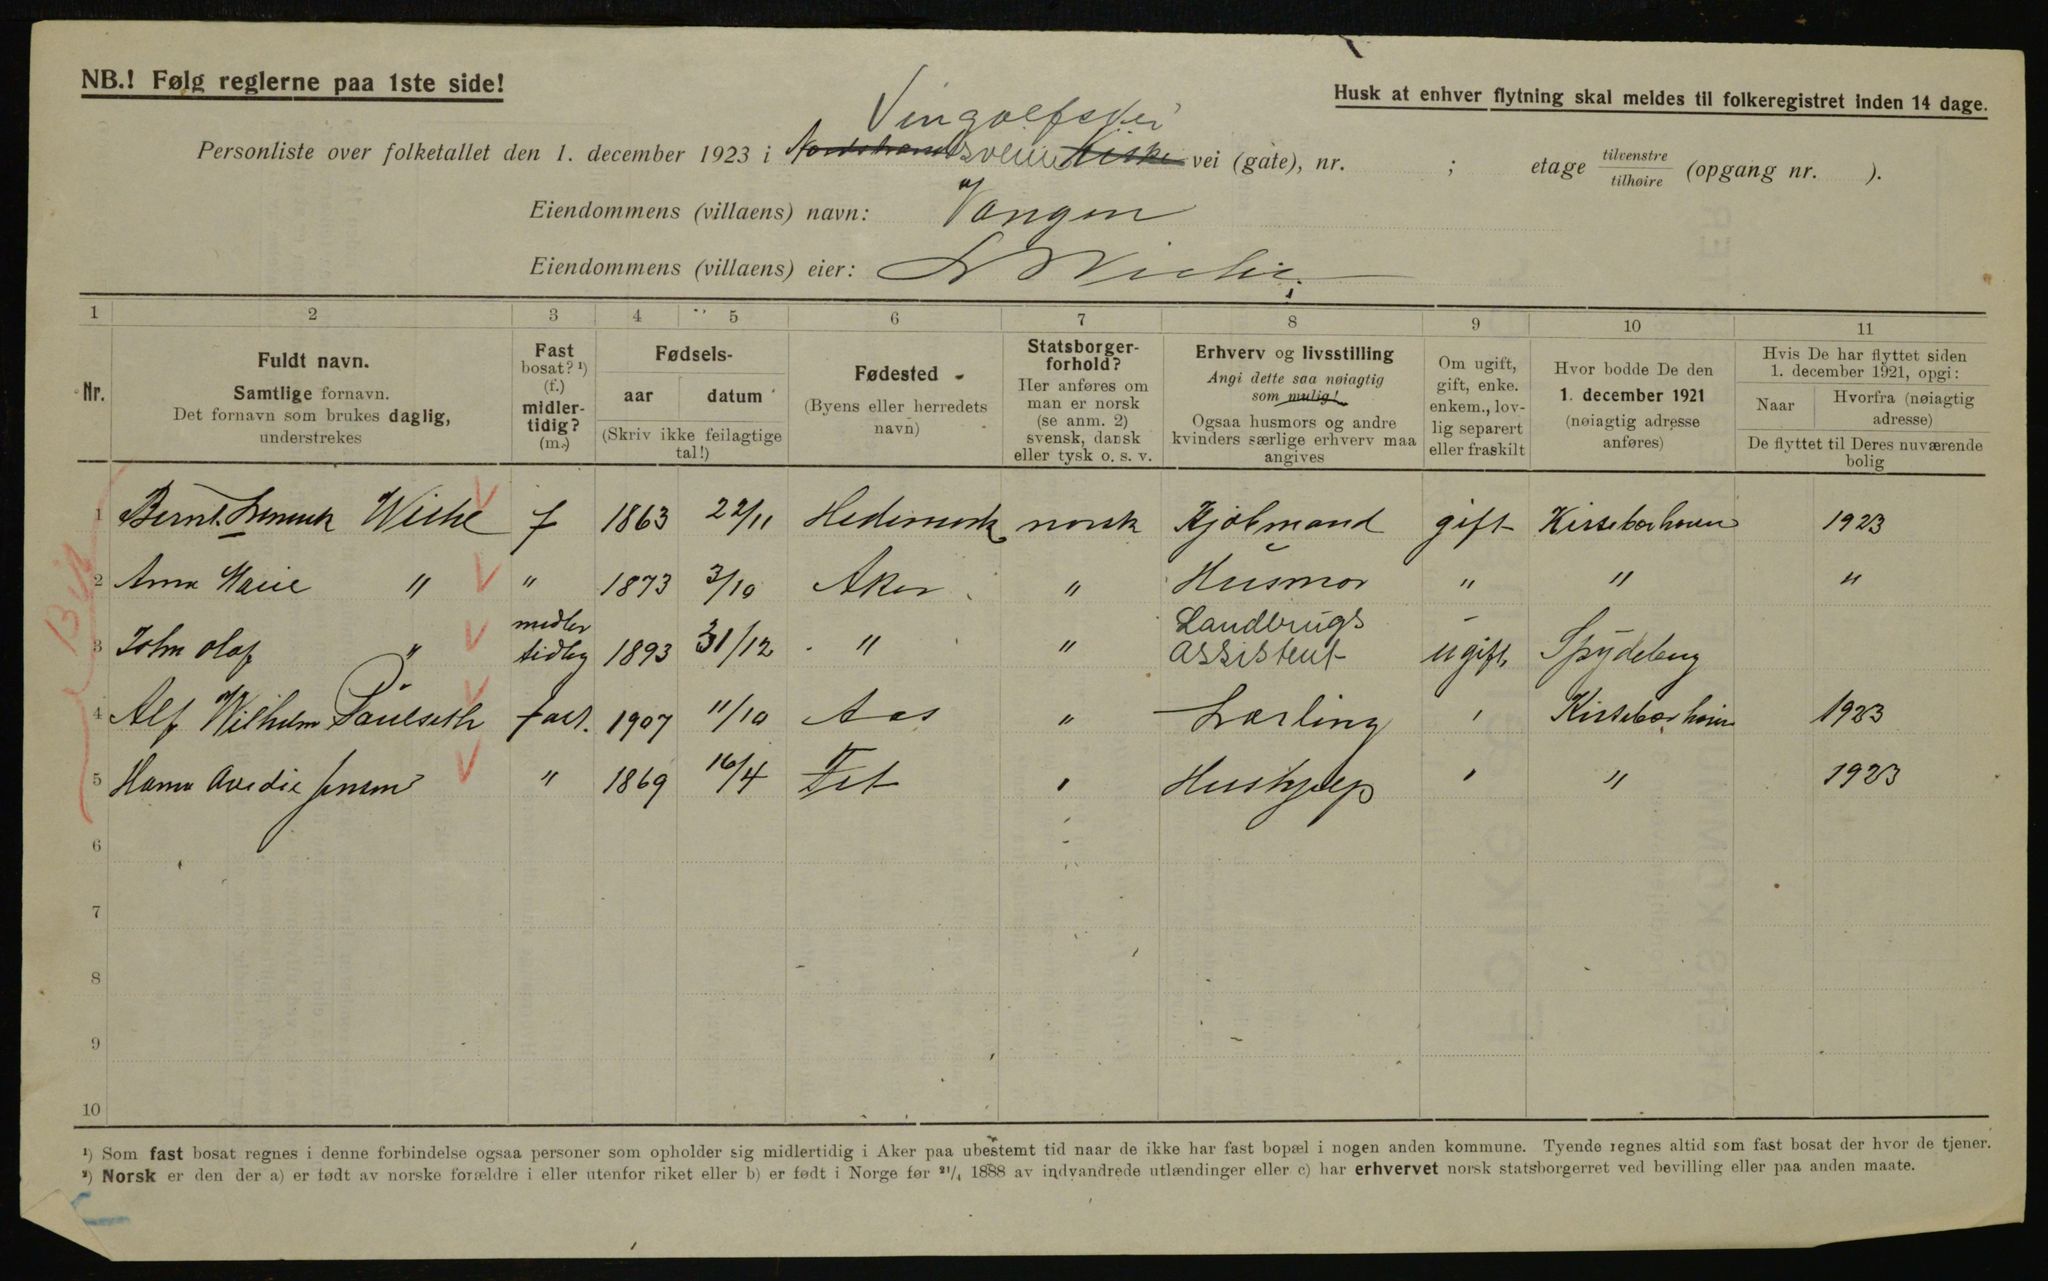 NB.! Følg reglerne paa 1ste side!
Husk at enhver flytning skal meldes til folkeregistret inden 14 dage.
Vingolfsvei
Personliste over folketallet den 1. december 1923 i Nordstrandsveien Kirke vei (gate), nr. ; etage tilvenstre tilhøire (opgang nr. ).
Eiendommens (villaens) navn: Vangen
Eiendommens (villaens) eier: L Wiche
1 2 3 4 5 6 7 8 9 10 11
Nr.
Fuldt navn.
Samtlige fornavn.
Det fornavn som brukes daglig,
understrekes
Fast
bosat? ¹)
(f.)
midler-
tidig?
(m.)
Fødsels-
aar datum
(Skriv ikke feilagtige
tal!)
Fødested
(Byens eller herredets
navn)
Statsborger-
forhold?
Her anføres om
man er norsk
(se anm. 2)
svensk, dansk
eller tysk o. s. v.
Erhverv og livsstilling
Angi dette saa nøiagtig
som mulig!
Ogsaa husmors og andre
kvinders særlige erhverv maa
angives
Om ugift,
gift, enke.
enkem., lov-
lig separert
eller fraskilt
Hvor bodde De den
1. december 1921
(nøiagtig adresse
anføres)
Hvis De har flyttet siden
1. december 1921, opgi:
Naar
Hvorfra (nøiagtig
adresse)
De flyttet til Deres nuværende
bolig
1 Bernt Wiche f 1863 22/11 Hedemark norsk Kjøbmand gift Kirsebærhaven 1923
2 Anna Marie " " 1873 3/10 Aker " Husmor " " "
3 John Olaf " midler tidig 1893 31/12 " " Landbrugs assistent ugift Spydeberg
4 Alf Wilhelm Paulseth fast. 1907 11/10 Aas " Lærling " Kirsebærhaven 1923
5 Hanna Jensen " 1869 16/4 Fet " Hushjelp " " 1923
6
7
8
9
10
¹) Som fast bosat regnes i denne forbindelse ogsaa personer som opholder sig midlertidig i Aker paa ubestemt tid naar de ikke har fast bopæl i nogen anden kommune. Tyende regnes altid som fast bosat der hvor de tjener.
²) Norsk er den der a) er født av norske forældre i eller utenfor riket eller b) er født i Norge før ²¹/₄ 1888 av indvandrede utlændinger eller c) har erhvervet norsk statsborgerret ved bevilling eller paa anden maate.